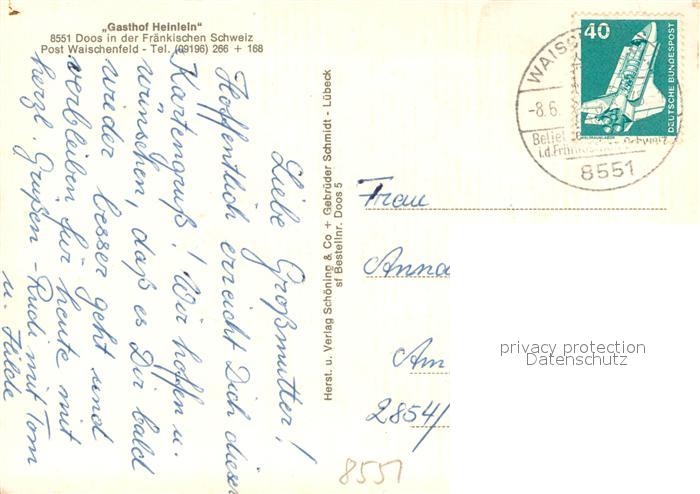 „Gasthof Heinlein“
8551 Doos in der Fränkischen Schweiz
Post Waischenfeld - Tel. (09196) 266 + 168
Liebe Großmutter!
Hoffentlich erreicht Dich dieser
Kartengruß! Wir hoffen u.
wünschen, daß es Dir bald
wieder besser geht und
verbleiben für heute mit
herzl. Grüßen - Rudi mit Tom
u. Hilde
Herst. u. Verlag Schöning & Co + Gebrüder Schmidt - Lübeck
sf Bestellnr. Doos 5
WAISCH
-8.6.
Belie
i.d. Fränkischen Schweiz
8551
40
DEUTSCHE BUNDESPOST
Frau
Anna
Am
2854/
privacy protection
Datenschutz
8551